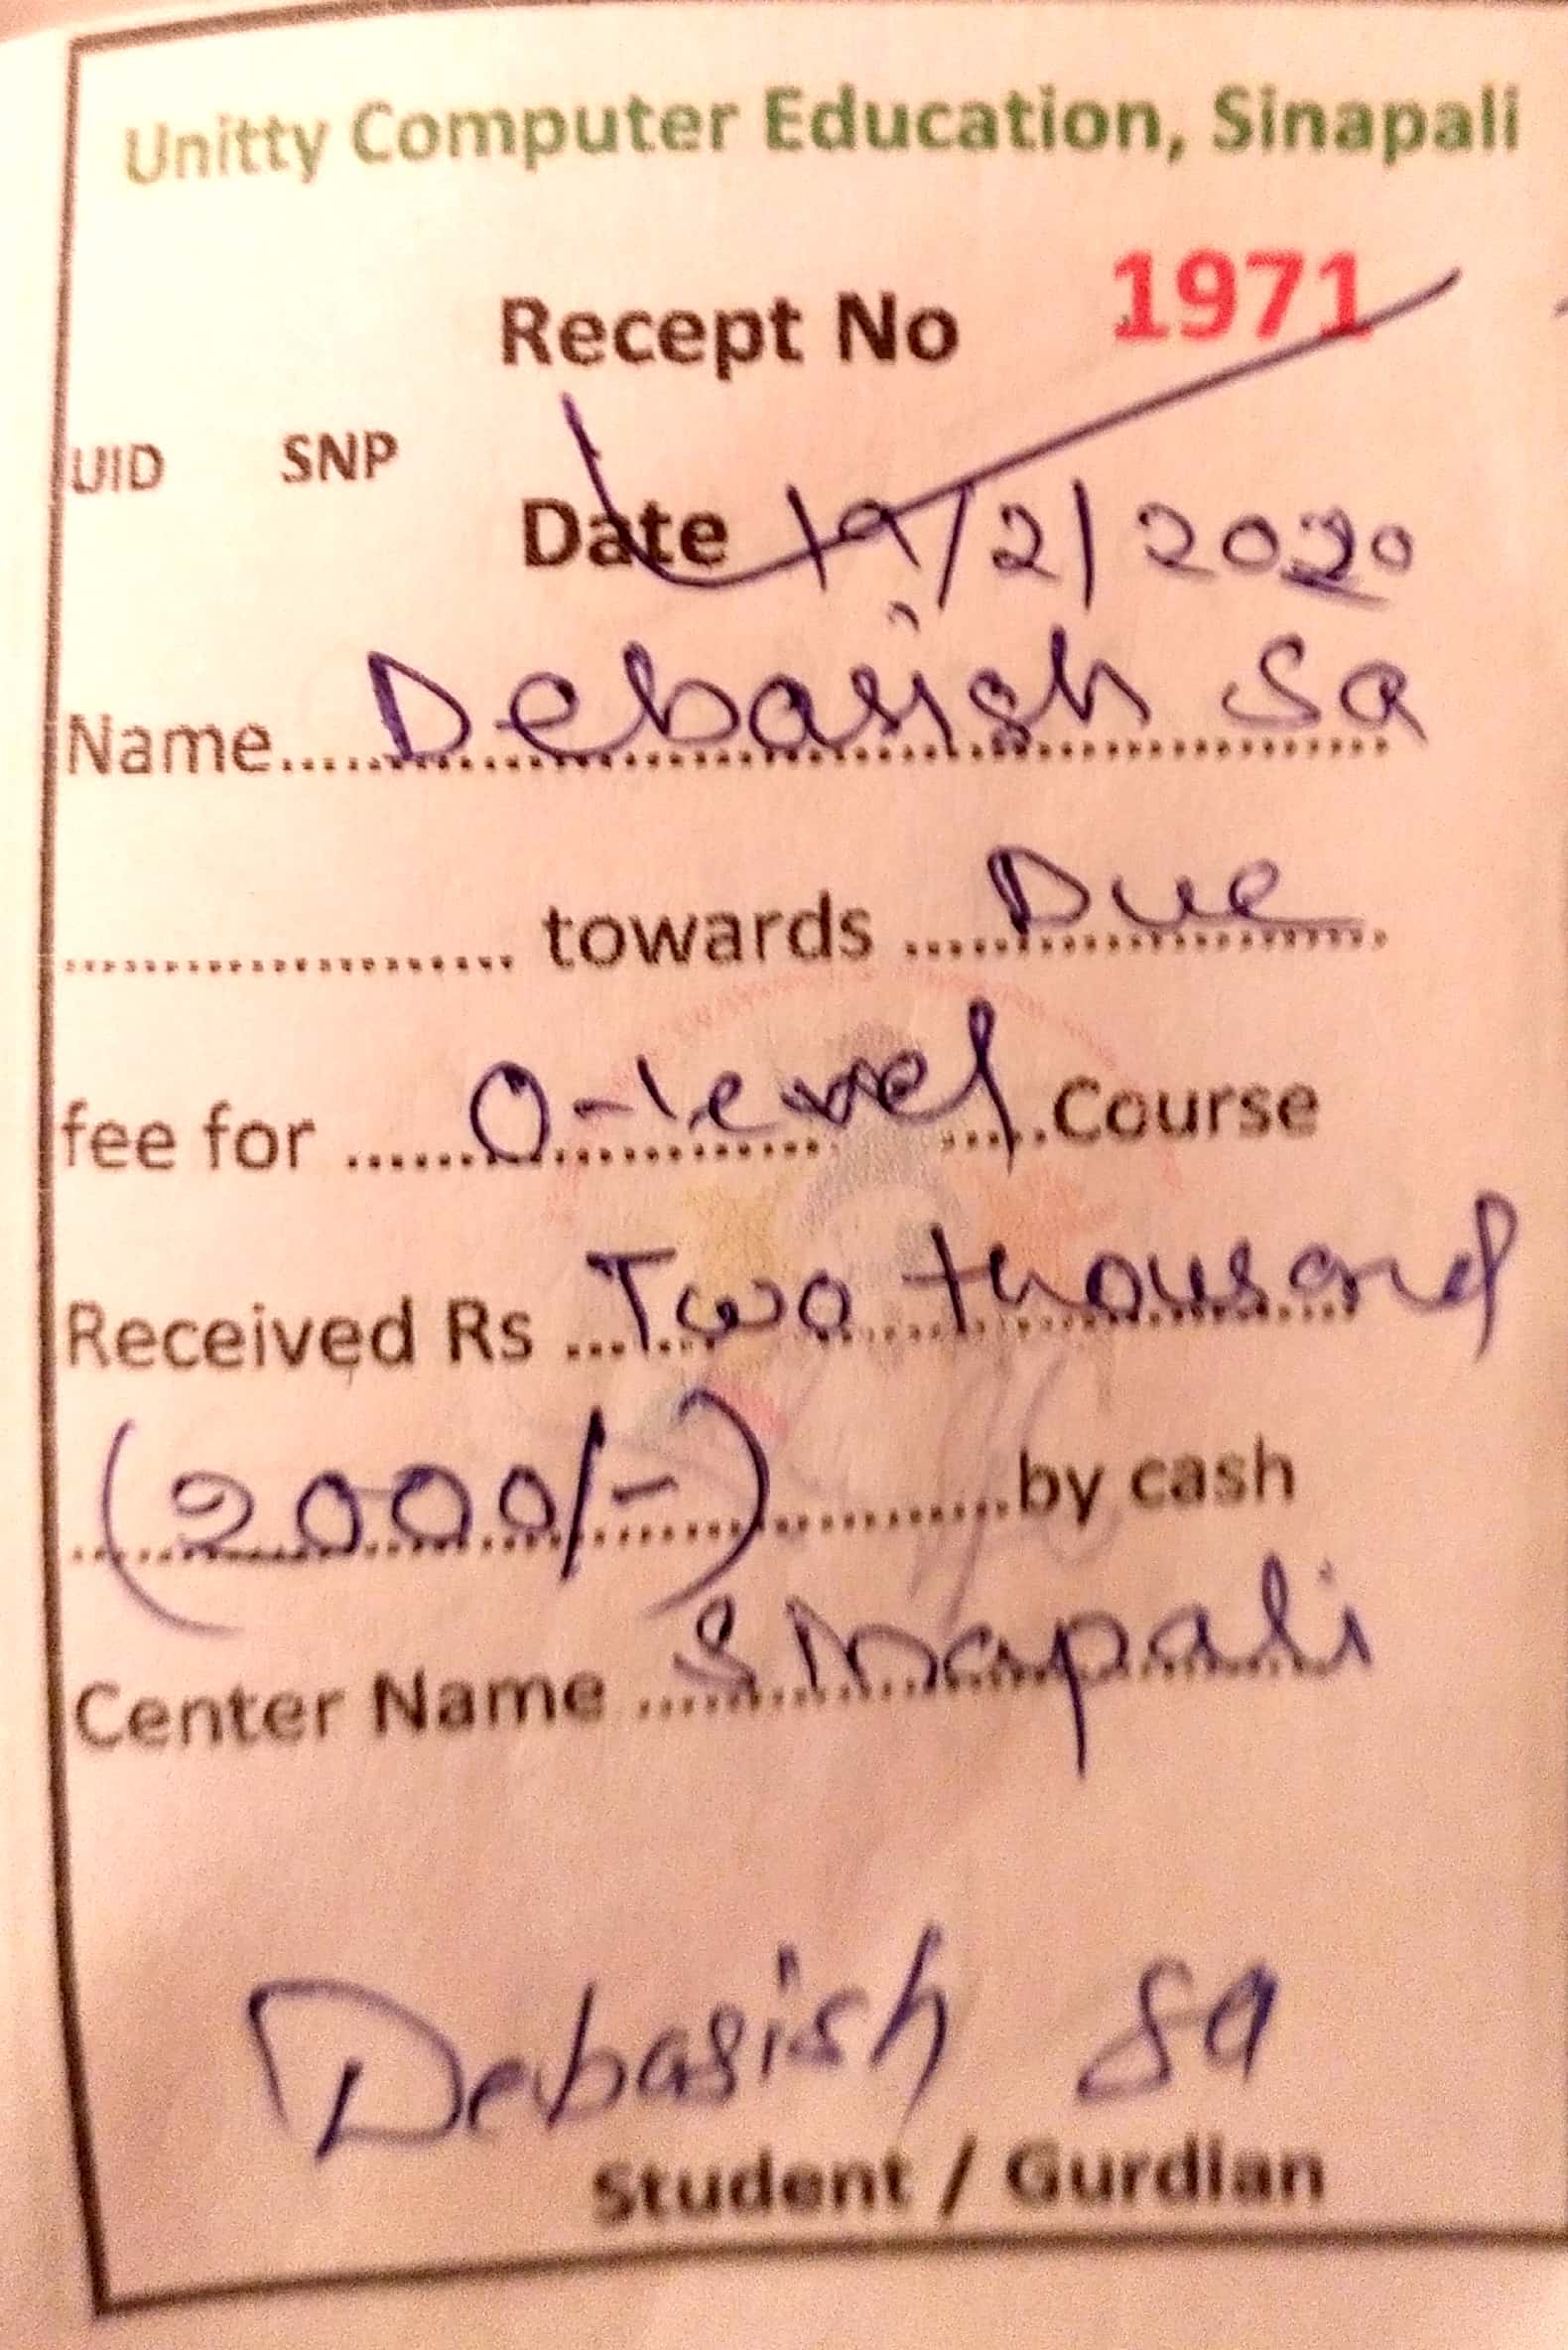 Unitty Computer Education, Sinapali
Recept No 1971
UID SNP
Date 19/2/2020
Name.....Debasish Sa
.................... towards ....Due....
fee for ......O-level.....Course
Received Rs ...Two thousand
(2000/-)..........by cash
Center Name ....Sinapali
Debasish Sa
Student / Gurdian